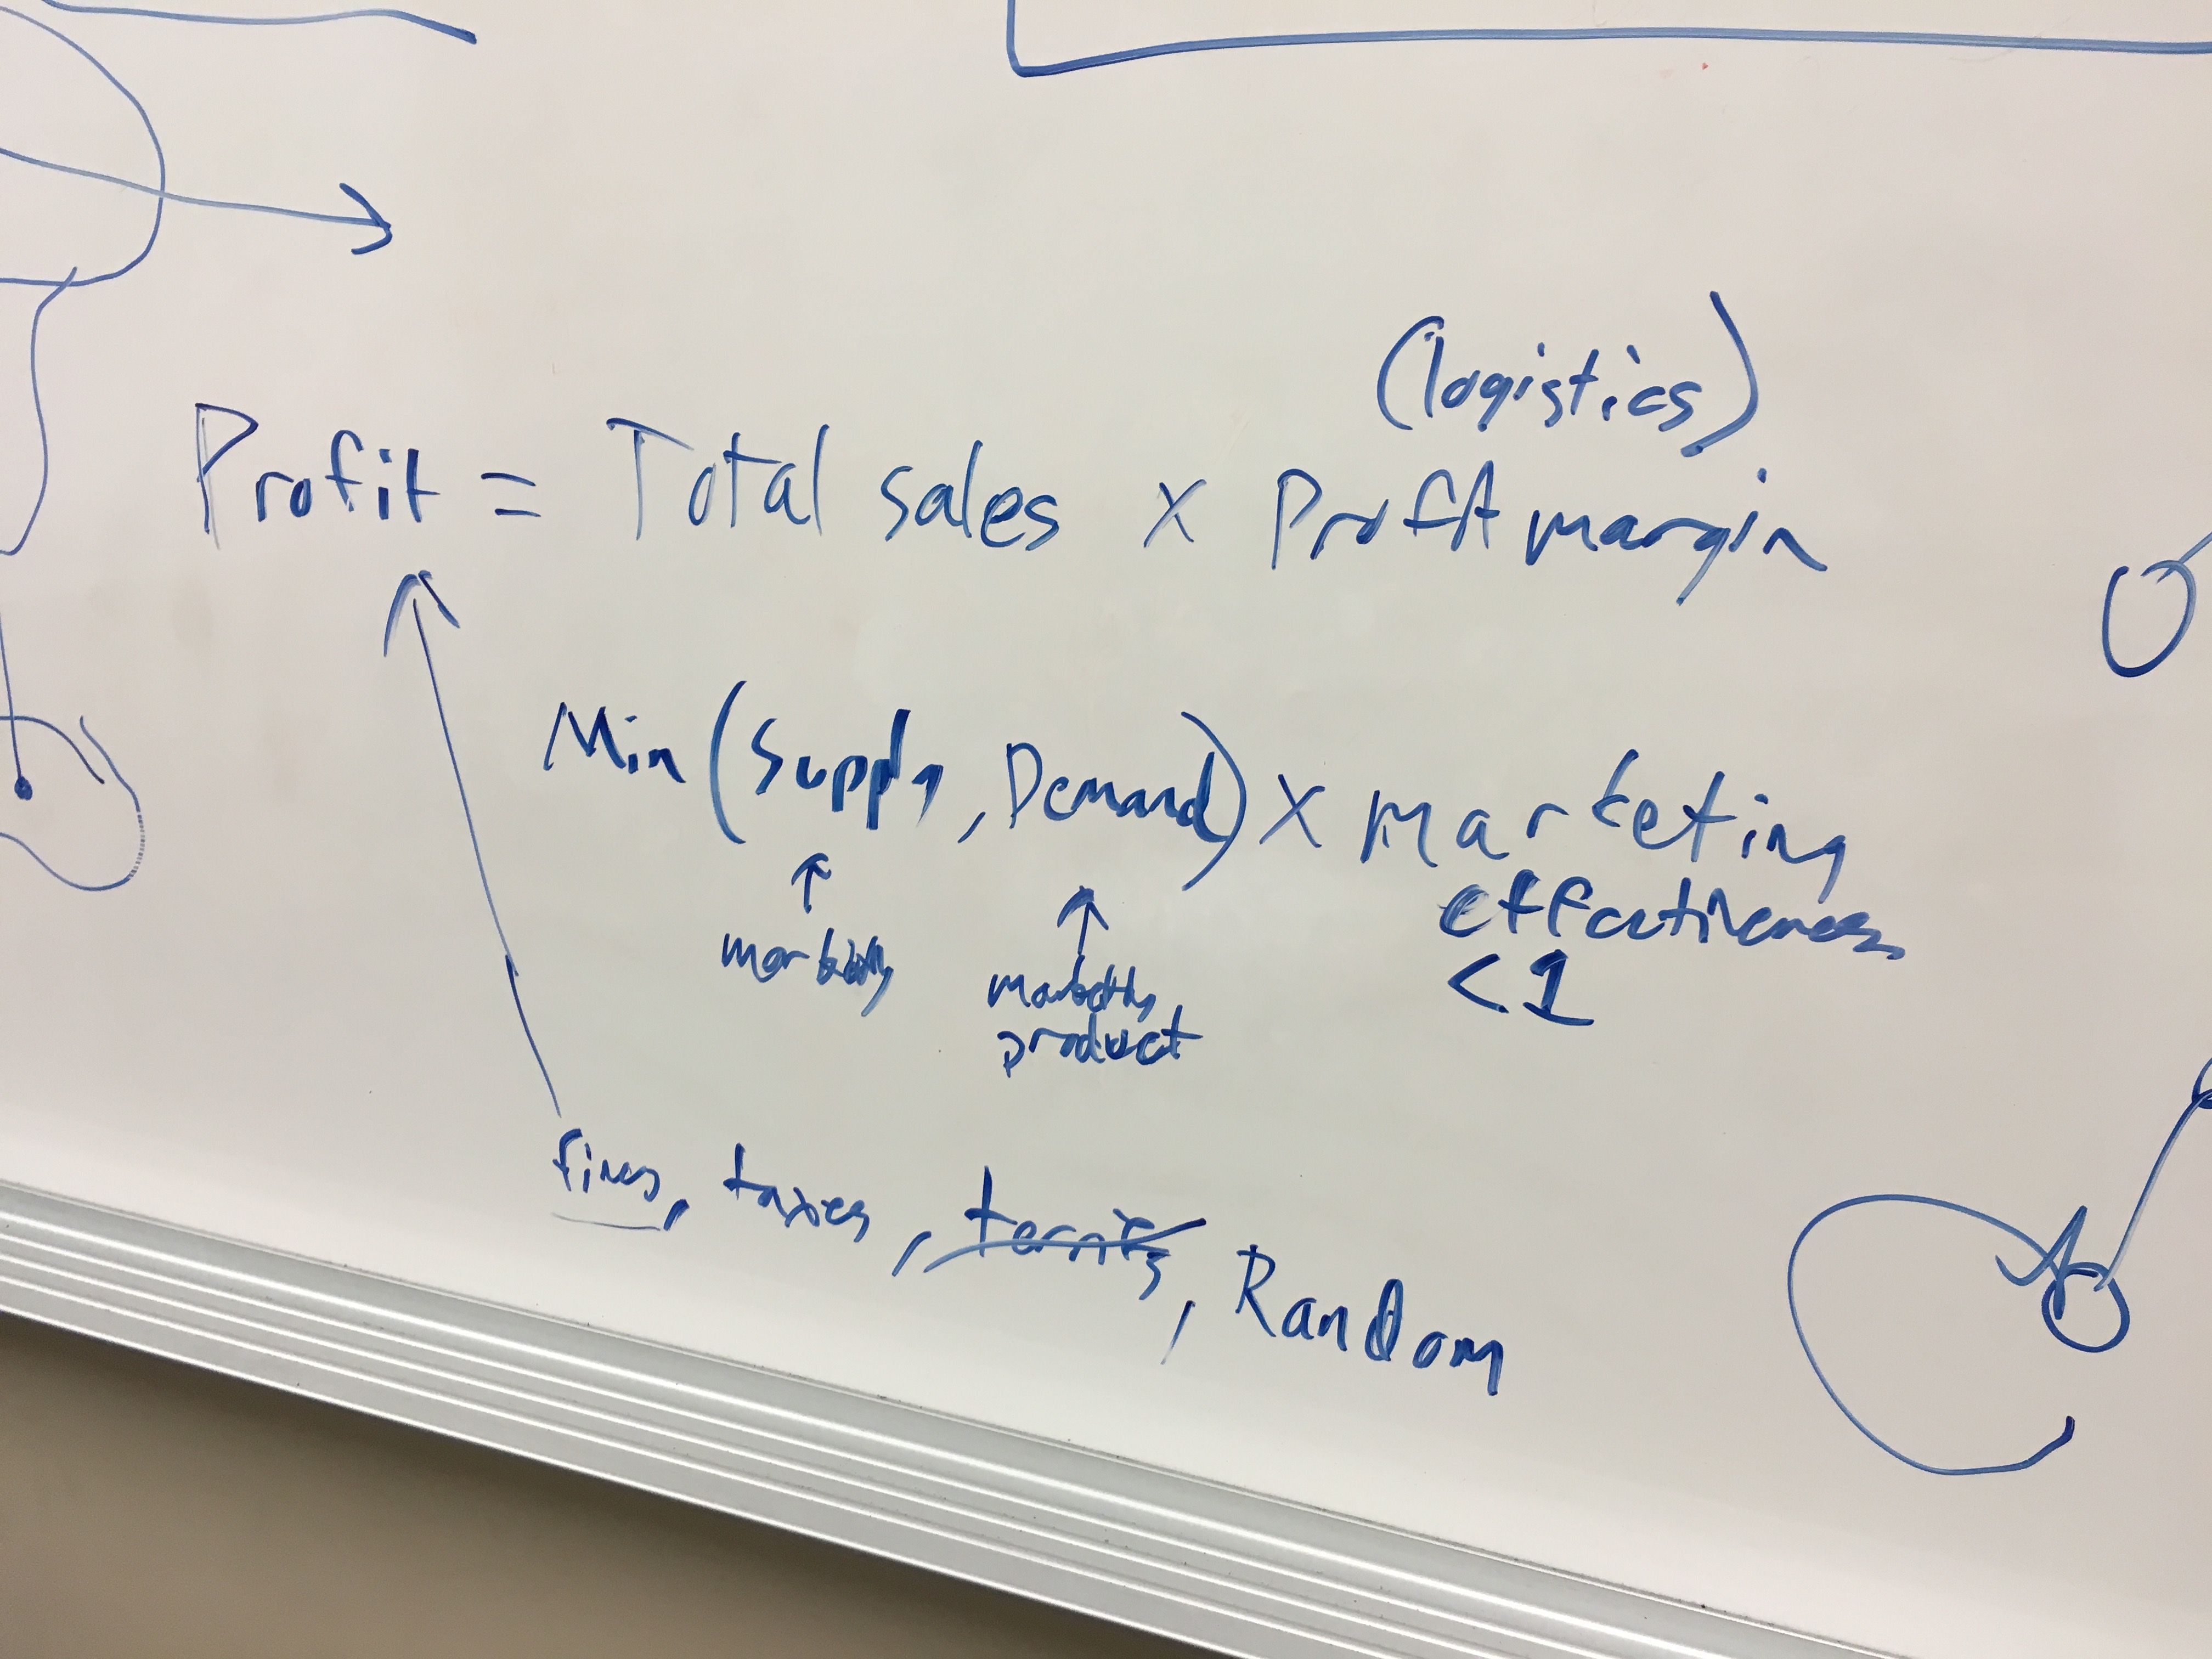 (logistics)
Profit = Total sales x Profit margin
Min (Supply, Demand) x marketing
effectiveness
<1
product
fines, taxes, , Random